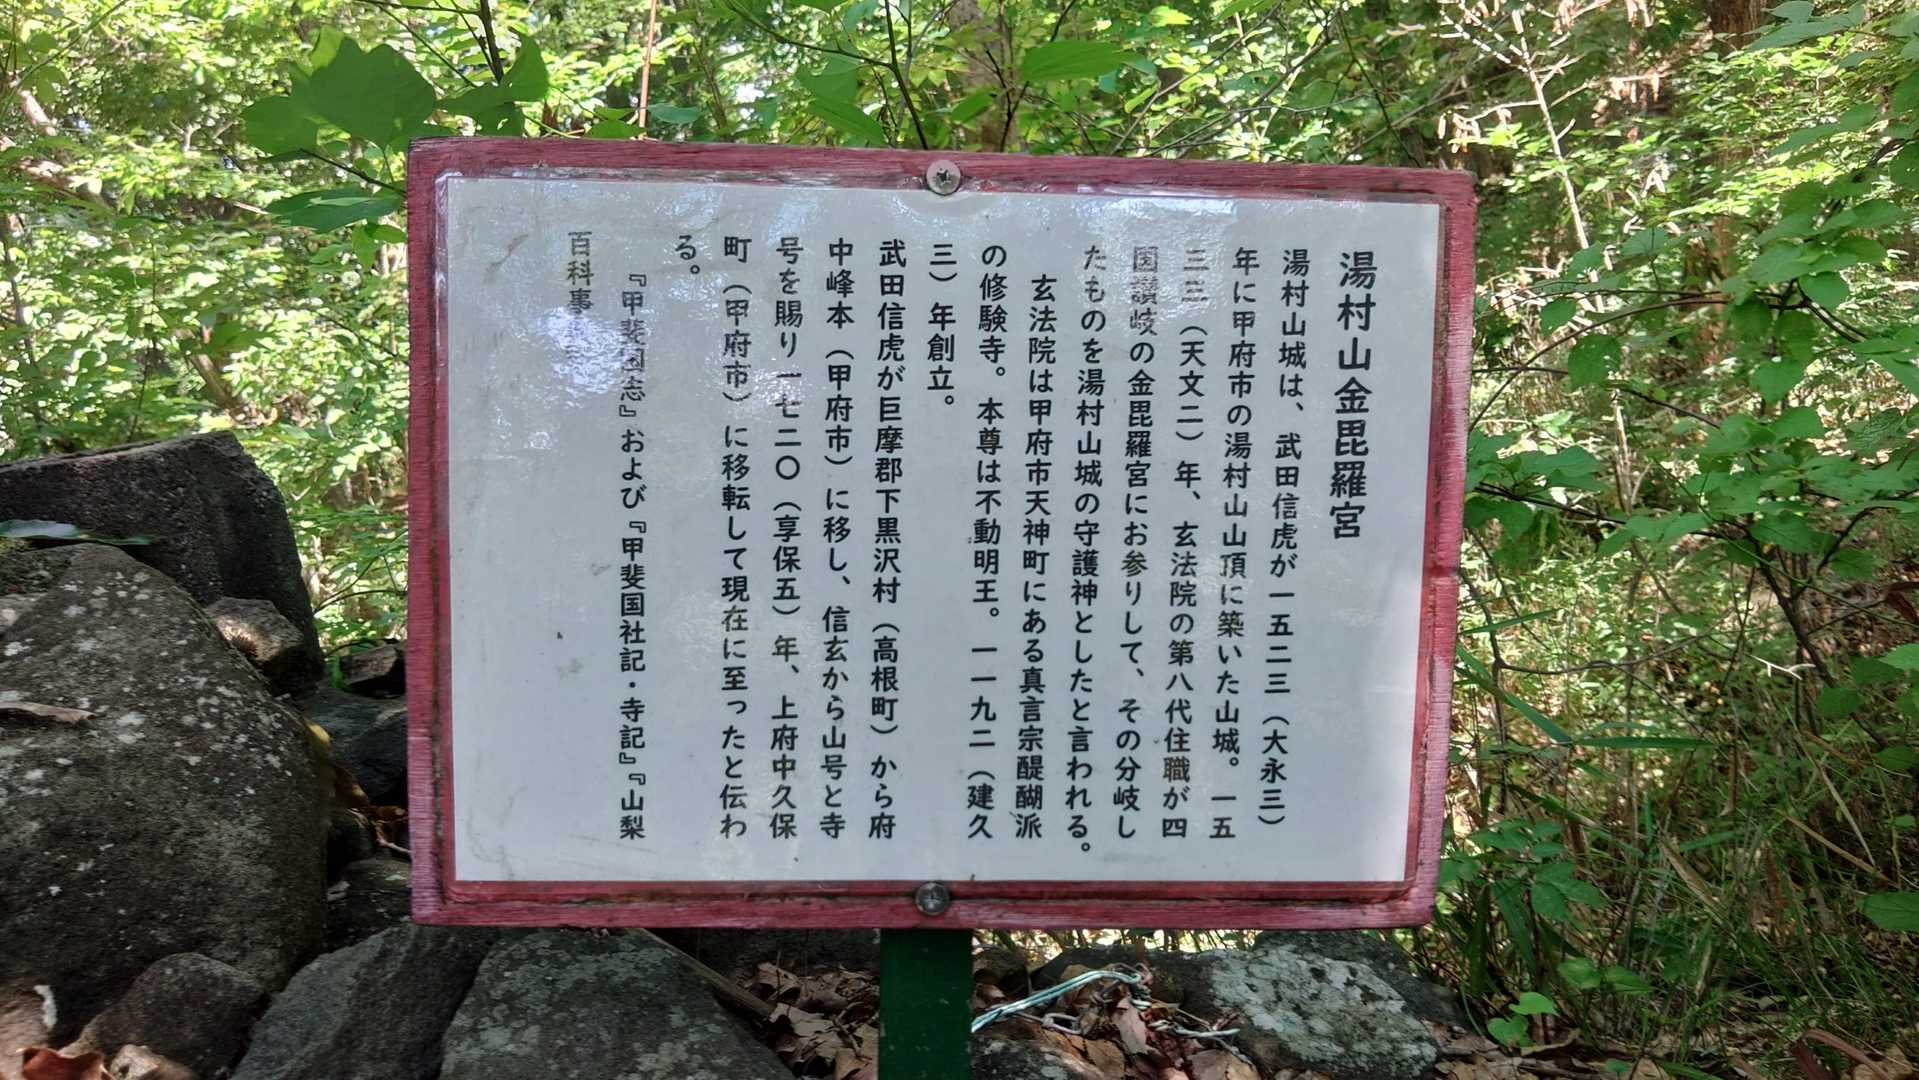 湯村山金毘羅宮
湯村山城は、武田信虎が一五二三（大永三）
年に甲府市の湯村山山頂に築いた山城。一五
三三（天文二）年、玄法院の第八代住職が四
国讃岐の金毘羅宮にお参りして、その分岐し
たものを湯村山城の守護神としたと言われる。
玄法院は甲府市天神町にある真言宗醍醐派
の修験寺。本尊は不動明王。一一九二（建久
三）年創立。
武田信虎が巨摩郡下黒沢村（高根町）から府
中峰本（甲府市）に移し、信玄から山号と寺
号を賜り一七二〇（享保五）年、上府中久保
町（甲府市）に移転して現在に至ったと伝わ
る。
『甲斐国志』および『甲斐国社記・寺記』『山梨
百科事